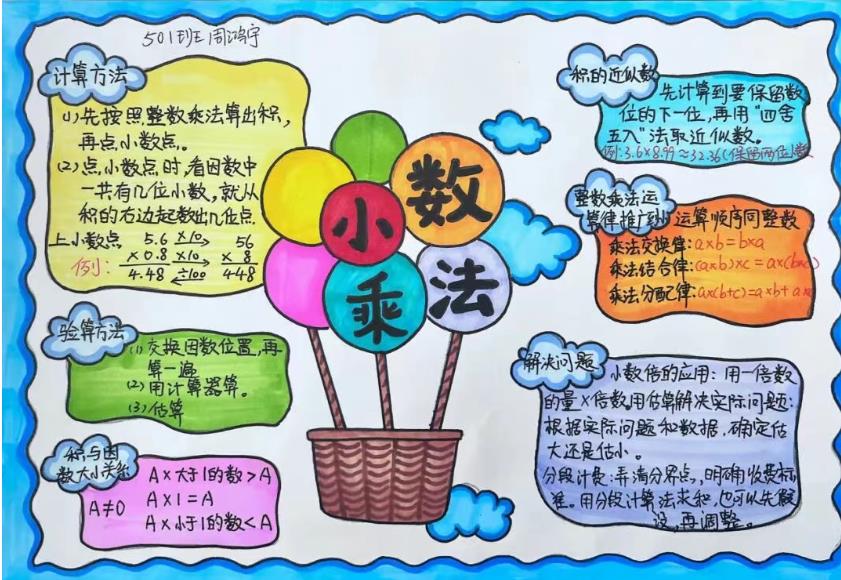 501班周鸿宇
计算方法
(1)先按照整数乘法算出积,
再点小数点。
(2)点小数点时,看因数中
一共有几位小数,就从
积的右边起数出几位点
上小数点
例:
5.6 ×10→ 56
×0.8 ×10→ ×8
4.48 ←÷100 448
验算方法
(1)交换因数位置,再
算一遍
(2)用计算器算。
(3)估算
积与因
数大小关系
A≠0
A×大于1的数>A
A×1=A
A×小于1的数<A
小数
乘法
积的近似数
先计算到要保留数
位的下一位,再用"四舍
五入"法取近似数。
例:3.6×8.99≈32.36(保留两位小数
整数乘法运
算律推广到小
运算顺序同整数
乘法交换律:a×b=b×a
乘法结合律:(a×b)×c=a×(b×c)
乘法分配律:a×(b+c)=a×b+a×
解决问题
小数倍的应用:用一倍数
的量×倍数。用估算解决实际问题:
根据实际问题和数据,确定估
大还是估小。
分段计费:弄清分界点,明确收费标
准。用分段计算法求和,也可以先假
设,再调整。